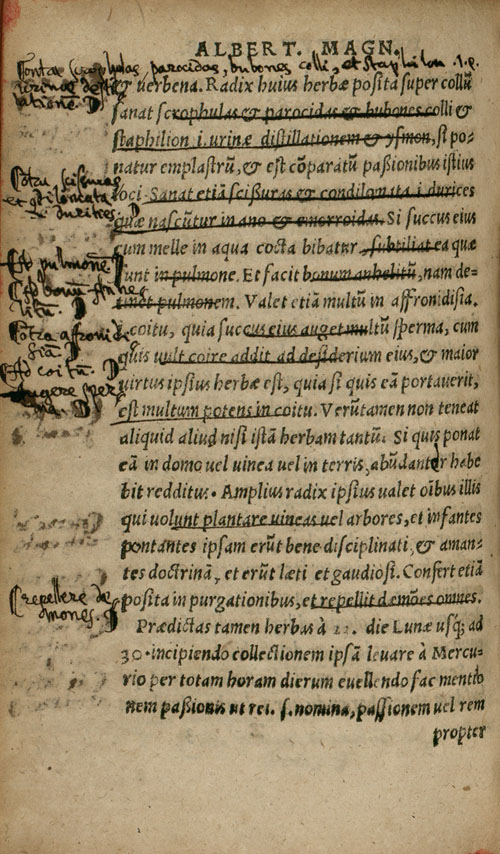 ALBERT. MAGN.
& uerbena. Radix huius herbæ posita super collũ
sanat scrophulas & parocidas & bubones colli &
staphilion i. urinæ distillationem & ysmon, si po-
natur emplastrũ, & est cõparatũ paßionibus istius
loci. Sanat etiã scißuras & condilomata i. durices
quæ nascũtur in ano & emorroidas. Si succus eius
cum melle in aqua cocta bibatur, subtiliat ea quæ
sunt in pulmone. Et facit bonum anhelitũ, nam de-
pulmonem. Valet etiã multũ in affronidisia.
i. coitu, quia succus eius auget multũ sperma, cum
quis uult coire addit ad desiderium eius, & maior
uirtus ipsius herbæ est, quia si quis eã portauerit,
est multum potens in coitu. Verũtamen non teneat
aliquid aliud nisi istã herbam tantũ. Si quis ponat
eã in domo uel uinea uel in terris, abũdanter habe
bit redditus. Amplius radix ipsius ualet oĩbus illis
qui uolunt plantare uineas uel arbores, et infantes
portantes ipsam erũt bene disciplinati, & aman-
tes doctrinã, et erũt læti et gaudiosi. Confert etiã
posita in purgationibus, et repellit dæmões omnes.
Prædictas tamen herbas à 22. die Lunæ usq; ad
30. incipiendo collectionem ipsã leuare à Mercu-
rio per totam horam dierum euellendo fac mentio
nem paßionis ut rei. s. nomina, passionem uel rem
propter
Contra scrophulas, parocidas, bubones colli, et staphilon .i.e.
urinae
Cotra scissuras
et
durities
Ad pulmonẽ
bonũ
Cotra afroni
Ad coitũ.
augere sper
ma.
repellere de
mones.